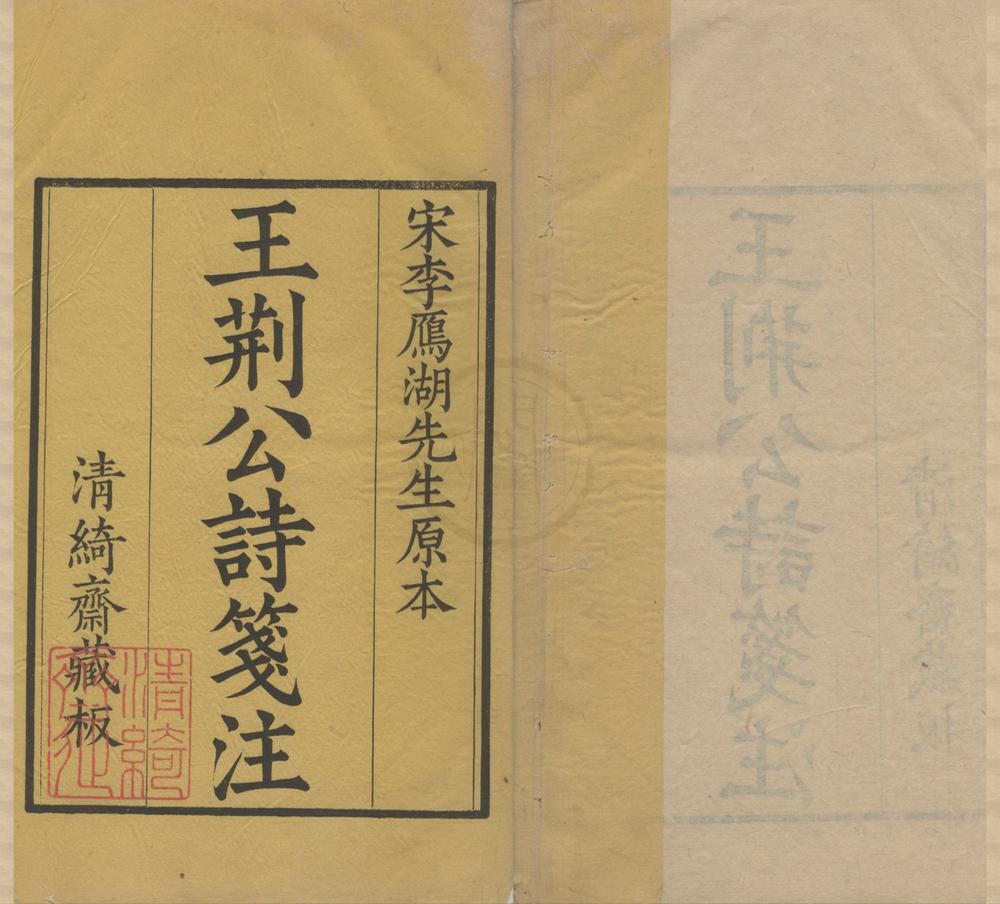 宋李鴈湖先生原本
王荆公詩箋注
清綺齋藏板
清綺